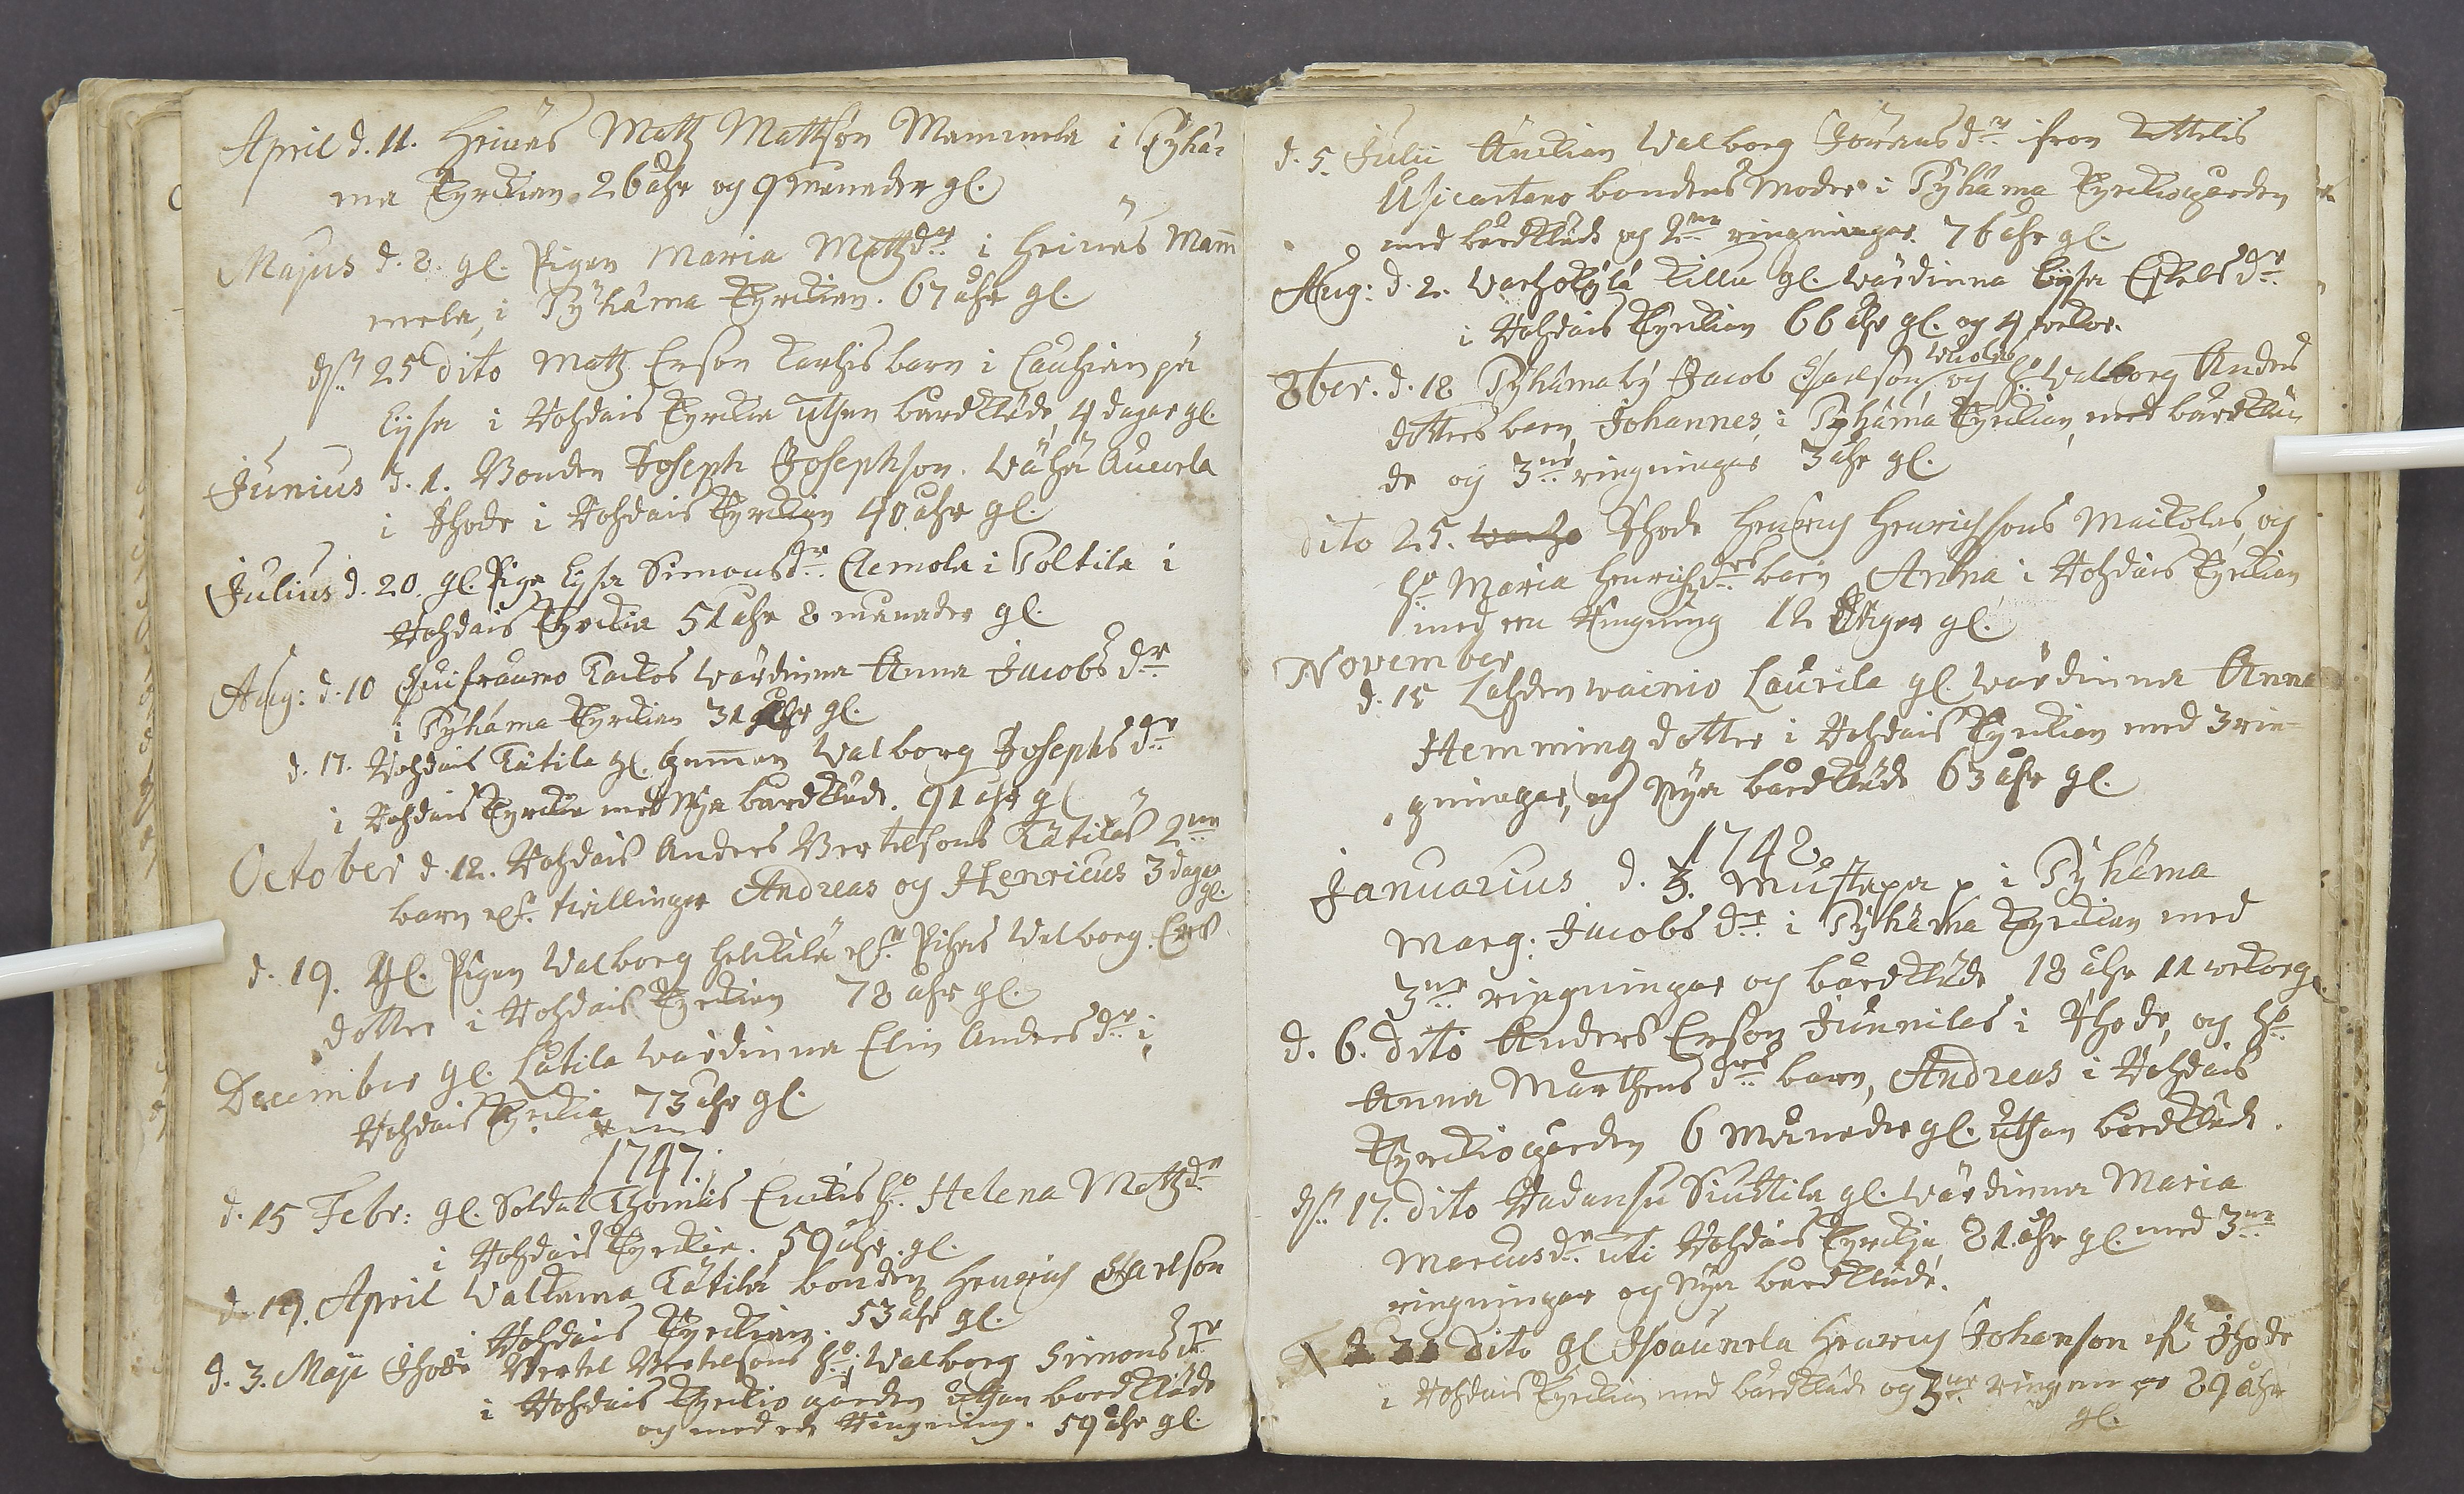 April d. 11. Heinäs Matz Mattson Mammela i Pyhä-
ma Kyrckian 26 åhr og 9 månader gl.
Majus d. 8. gl. Pigan Maria Matzdr i Heinäs Mam
mela, i Pyhäma Kyrckian. 67 åhr gl.
d. 25 dito Matz Erson barn i
Lysa i Hohdais Kyrckia uthan bårdkläde, 4 dagar gl.
Junius d. 1. Bonden Joseph Josephson. Wähä
i Ihode i Hohdais Kyrckian 40 åhr gl.
Julius d. 20. gl. Piga Lysa Simonsdr. Clemola i Poltila i
Hohdais Kyrckia 51 åhr 8 månader gl.
Aug: d. 10 wärdinna Anna Jacobs dr
i Pyhäma Kyrckian 31 åhr gl.
d. 17. Hohdais Kätila gl. gumman Walborg Josephs dr
i Hohdais Kyrckia med Nya bårdkläde. 91 åhr gl
October d. 12. Hohdais Anders Bertelsons Kätilas 2ne
barn twillingar Andreas og Henricus 3 dagar gl.
d. 19. Gl. Pigan Walborg Heikilä Walborg Ers
dotter i Hohdais Kyrckian 78 åhr gl.
December gl. Lätila wärdinna Elin Anders dr i
Hohdais Kyrckia 73 åhr gl.
1747.
d. 15 Febr: gl. Soldat Thomas ho. Helena Matzdr
i Hohdais Kyrckia. 59 åhr gl.
d. 19. April Waltama Kätilä bonden Henrich Carlson
i Hohdais Kyrckian. 53 åhr gl.
d. 3. Maji Ihode Bertel Bertelsons ho. Walborg Simons dr
i Hohdais Kyrckio gården uthan bordkläde
og med en Ringning. 59 åhr gl.
d. 5. Julii Änckian Walborg Jöransdr ifron
Usicartano bondens Moder i Pyhäma Kyrckiogården
med bårdkläde og 2ne ringningar. 76 åhr gl.
Aug: d. 2. Warhokylä Killu gl. wärdinna Lysa Eskelsdr
i Hohdais Kyrckian 66 åhr gl. og 4 wekor.
8ber. d. 18 Pyhämaby Jacob og ho. Walborg Anders
dotters barn, Johannes, i Pyhäma Kyrckian, med bårdklä-
de og 3ne ringningar 3 åhr gl.
dito 25. Ihode Henrich Henrichsons Maikolas, og
ho Maria Henrichdrs barn Anna i Hohdais Kyrckian
med en Ringning 12 dagar gl.
November
d. 15 Lahdenwainio Laurila gl. wärdinna Anna
Hemming dotter i Hohdais Kyrckian med 3 rin-
gningar, og Nya bårdkläde 63 åhr gl.
1748.
Januarius d. 3. Mustapa p i Pyhäma
Marg: Jacobs dr i Pyhäma Kyrckian med
3ne ringningar og bårdkläde 18 åhr 11 wekor g.
d. 6. dito Anders Erson Junnilas i Ihode, og ho
Anna Mårthensdrs barn, Andreas i Hohdais
Kyrckiogården 6 månader gl. uthan bårdkläde.
d. 17. dito Hadansu Siuttila gl. wärdinna Maria
Marcusdr uti Hohdais Kyrckja, 81 åhr gl. med 3ne
ringningar og Nya bårdkläde.
d. 31 dito gl Henrich Johanson Ihode
i Hohdais Kyrckian med bårdkläde og 3ne ringningar 89 åhr
gl.